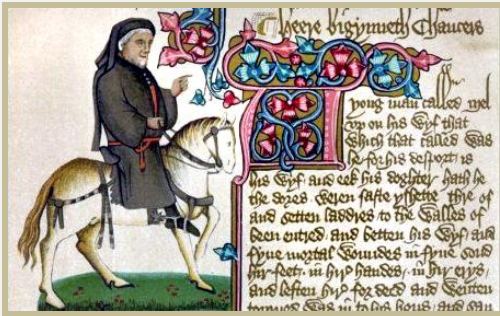 Heere bigynneth Chaucers
A yong man called Mel
vp on his Wyf that
Which that called Was
he for his desport is
his Wyf and eek his doghter hath he
the dores Weren faste yshette thre of
and setten laddres to the Walles of
been entred and betten his Wyf and
fyue mortal Woundes in fyue sond
hir feet in hir handes in hir erys
and leften hir for deed and Wenten
torned Was in to his hous and sau